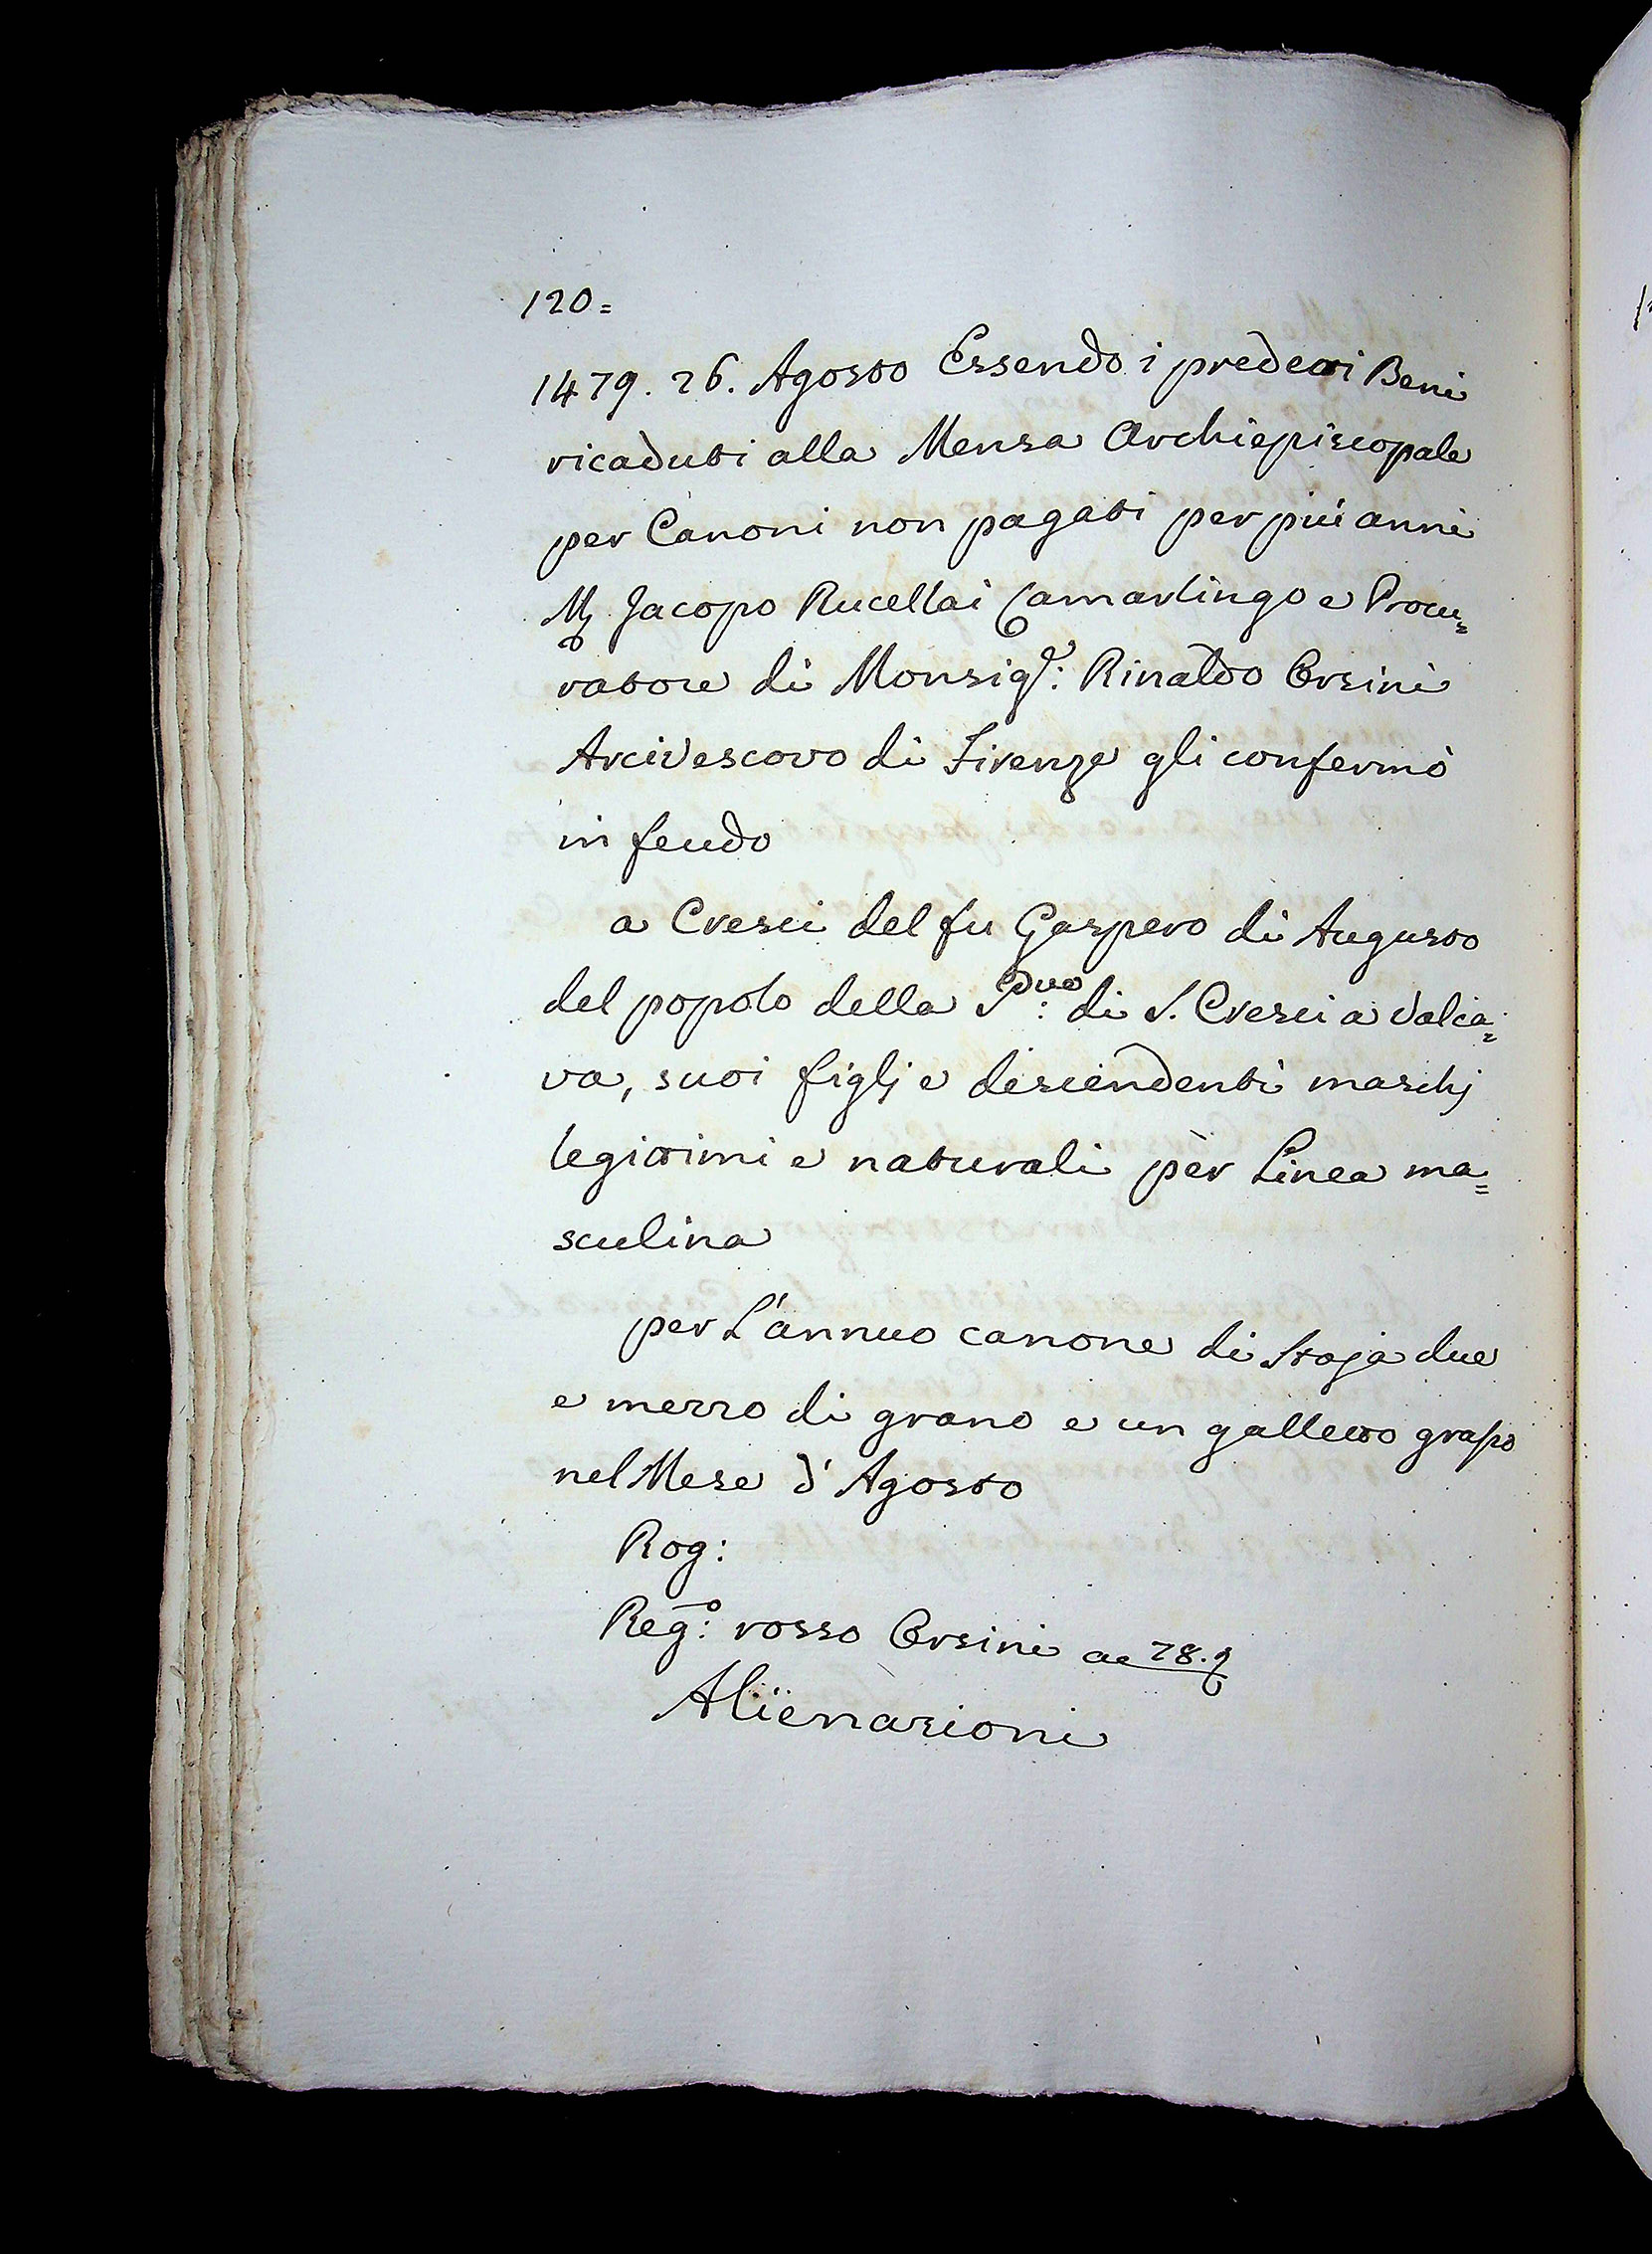 120=
1479. 26. Agosto Essendo i predetti Beni
ricaduti alla Mensa Archiepiscopale
per Canoni non pagati per più anni
Mr Jacopo Rucellai Camarlingo e Procu=
ratore di Monsigr: Rinaldo Orsini
Arcivescovo di Firenze gli confermò
in feudo
a Cresci del fu Gaspero di Augusto
del popolo della di S. Cresci a Valca=
va, suoi figlj e descendenti maschj
legittimi e naturali per Linea ma=
sculina
per L'annuo canone di Staja due
e mezzo di grano e un galletto grasso
nel Mese d'Agosto
Rog:
Rego: rosso Orsini ac 28.
Alïenazioni